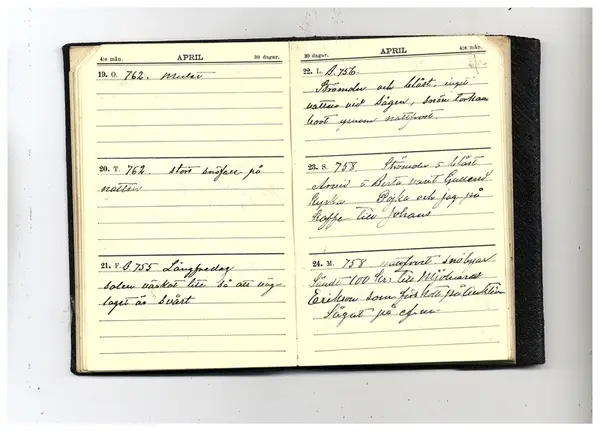 4:e mån. APRIL 30 dagar.
19. O. 762. Mulet
20. T. 762. stort snöfall på
natten
21. F. B 755 Långfredag
solen väskat lite så att väg-
laget är svårt
30 dagar. APRIL 4:e mån.
22. L. B. 756.
Strömoln och blåst, inget
vatten vid sågen, snön torkar
bort genom nattfrost.
23. S. 758 Strömoln o blåst
Arvid o Berta varit
Kyrka Pojka och jag på
Kaffe till Johans
24. M. 758 nattfrost. snöbyar
Sände 100 kr. till
Erikson som förskott på
Sågat på e.m.